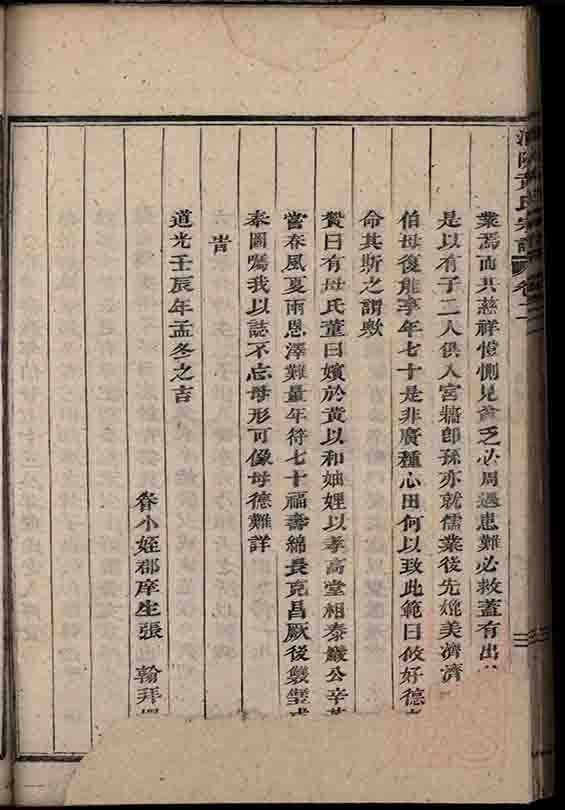 黃氏宗譜 卷二
業焉而其慈祥惻見貧乏必周遇患難必救蓋有出
是以有子二人俱入宮牆郎孫亦就儒業後先媲美濟濟
伯母復能享年七十是非廣種心田何以致此範曰攸好德
命其斯之謂歟
贊曰有母氏董曰嬪於黃以和妯娌以孝高堂相泰巖公辛
當春風夏雨恩澤難量年符七十福壽綿長克昌厥後襲
泰圖囑我以誌不忘母形可像母德難詳
旹
道光壬辰年孟冬之吉
眷小姪郡庠生張 翰拜
三